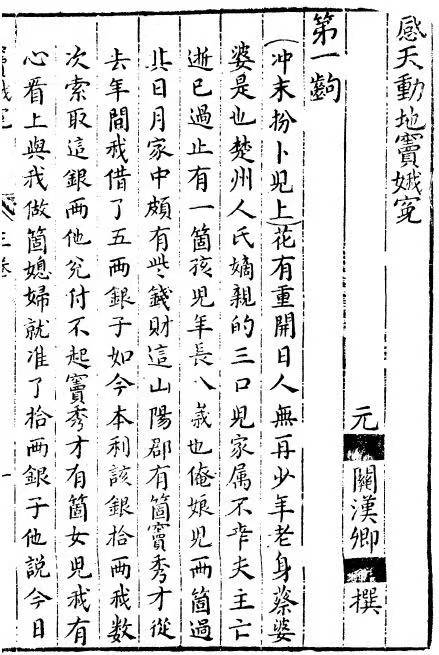 感天動地竇娥冤
元 關漢卿 撰
第一齣
(冲末扮卜兒上)花有重開日人無再少年老身蔡婆
婆是也楚州人氏嫡親的三口兒家属不幸夫主亡
逝已過止有一箇孩兒年長八歲也俺娘兒兩箇過
其日月家中頗有些錢財這山陽郡有箇竇秀才從
去年間我借了五兩銀子如今本利該銀拾兩我數
次索取這銀兩他兌付不起竇秀才有箇女兒我有
心看上與我做箇媳婦就准了拾兩銀子他說今日